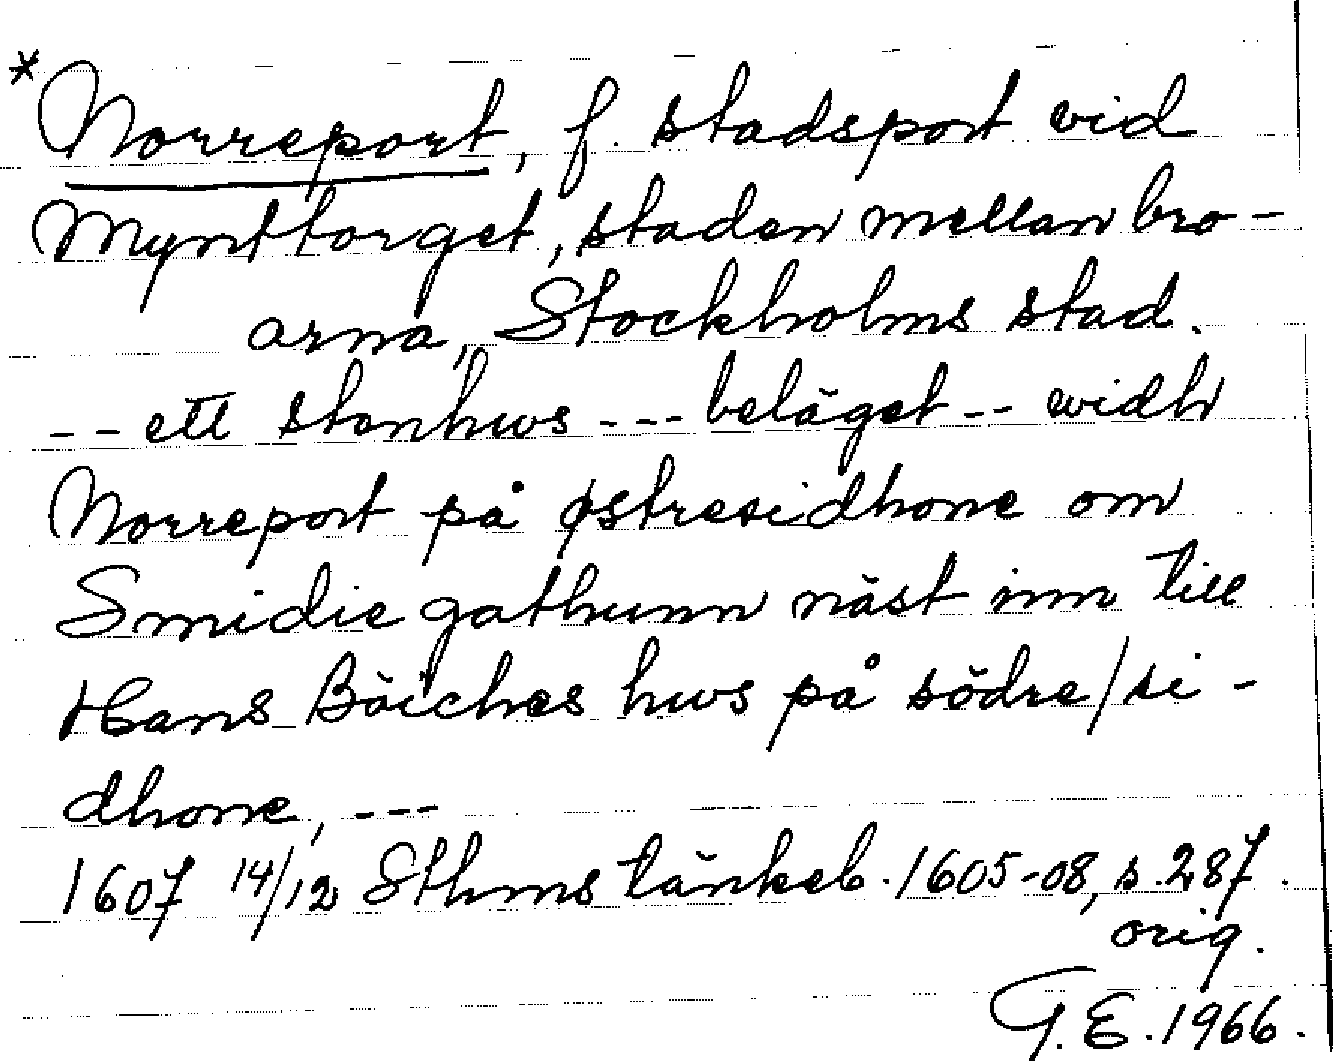 * Norreport, f. stadsport vid
Mynttorget, staden mellan bro-
arna, Stockholms stad.
-- ett stenhws --- beläget -- widh
Norreport på østresidhone om
Smidie gathunn näst inn till
Hans Böiches hws på södre/si-
dhone, ---
1607 14/12 Sthms tänkeb. 1605-08, s. 287.
orig.
G. E. 1966.